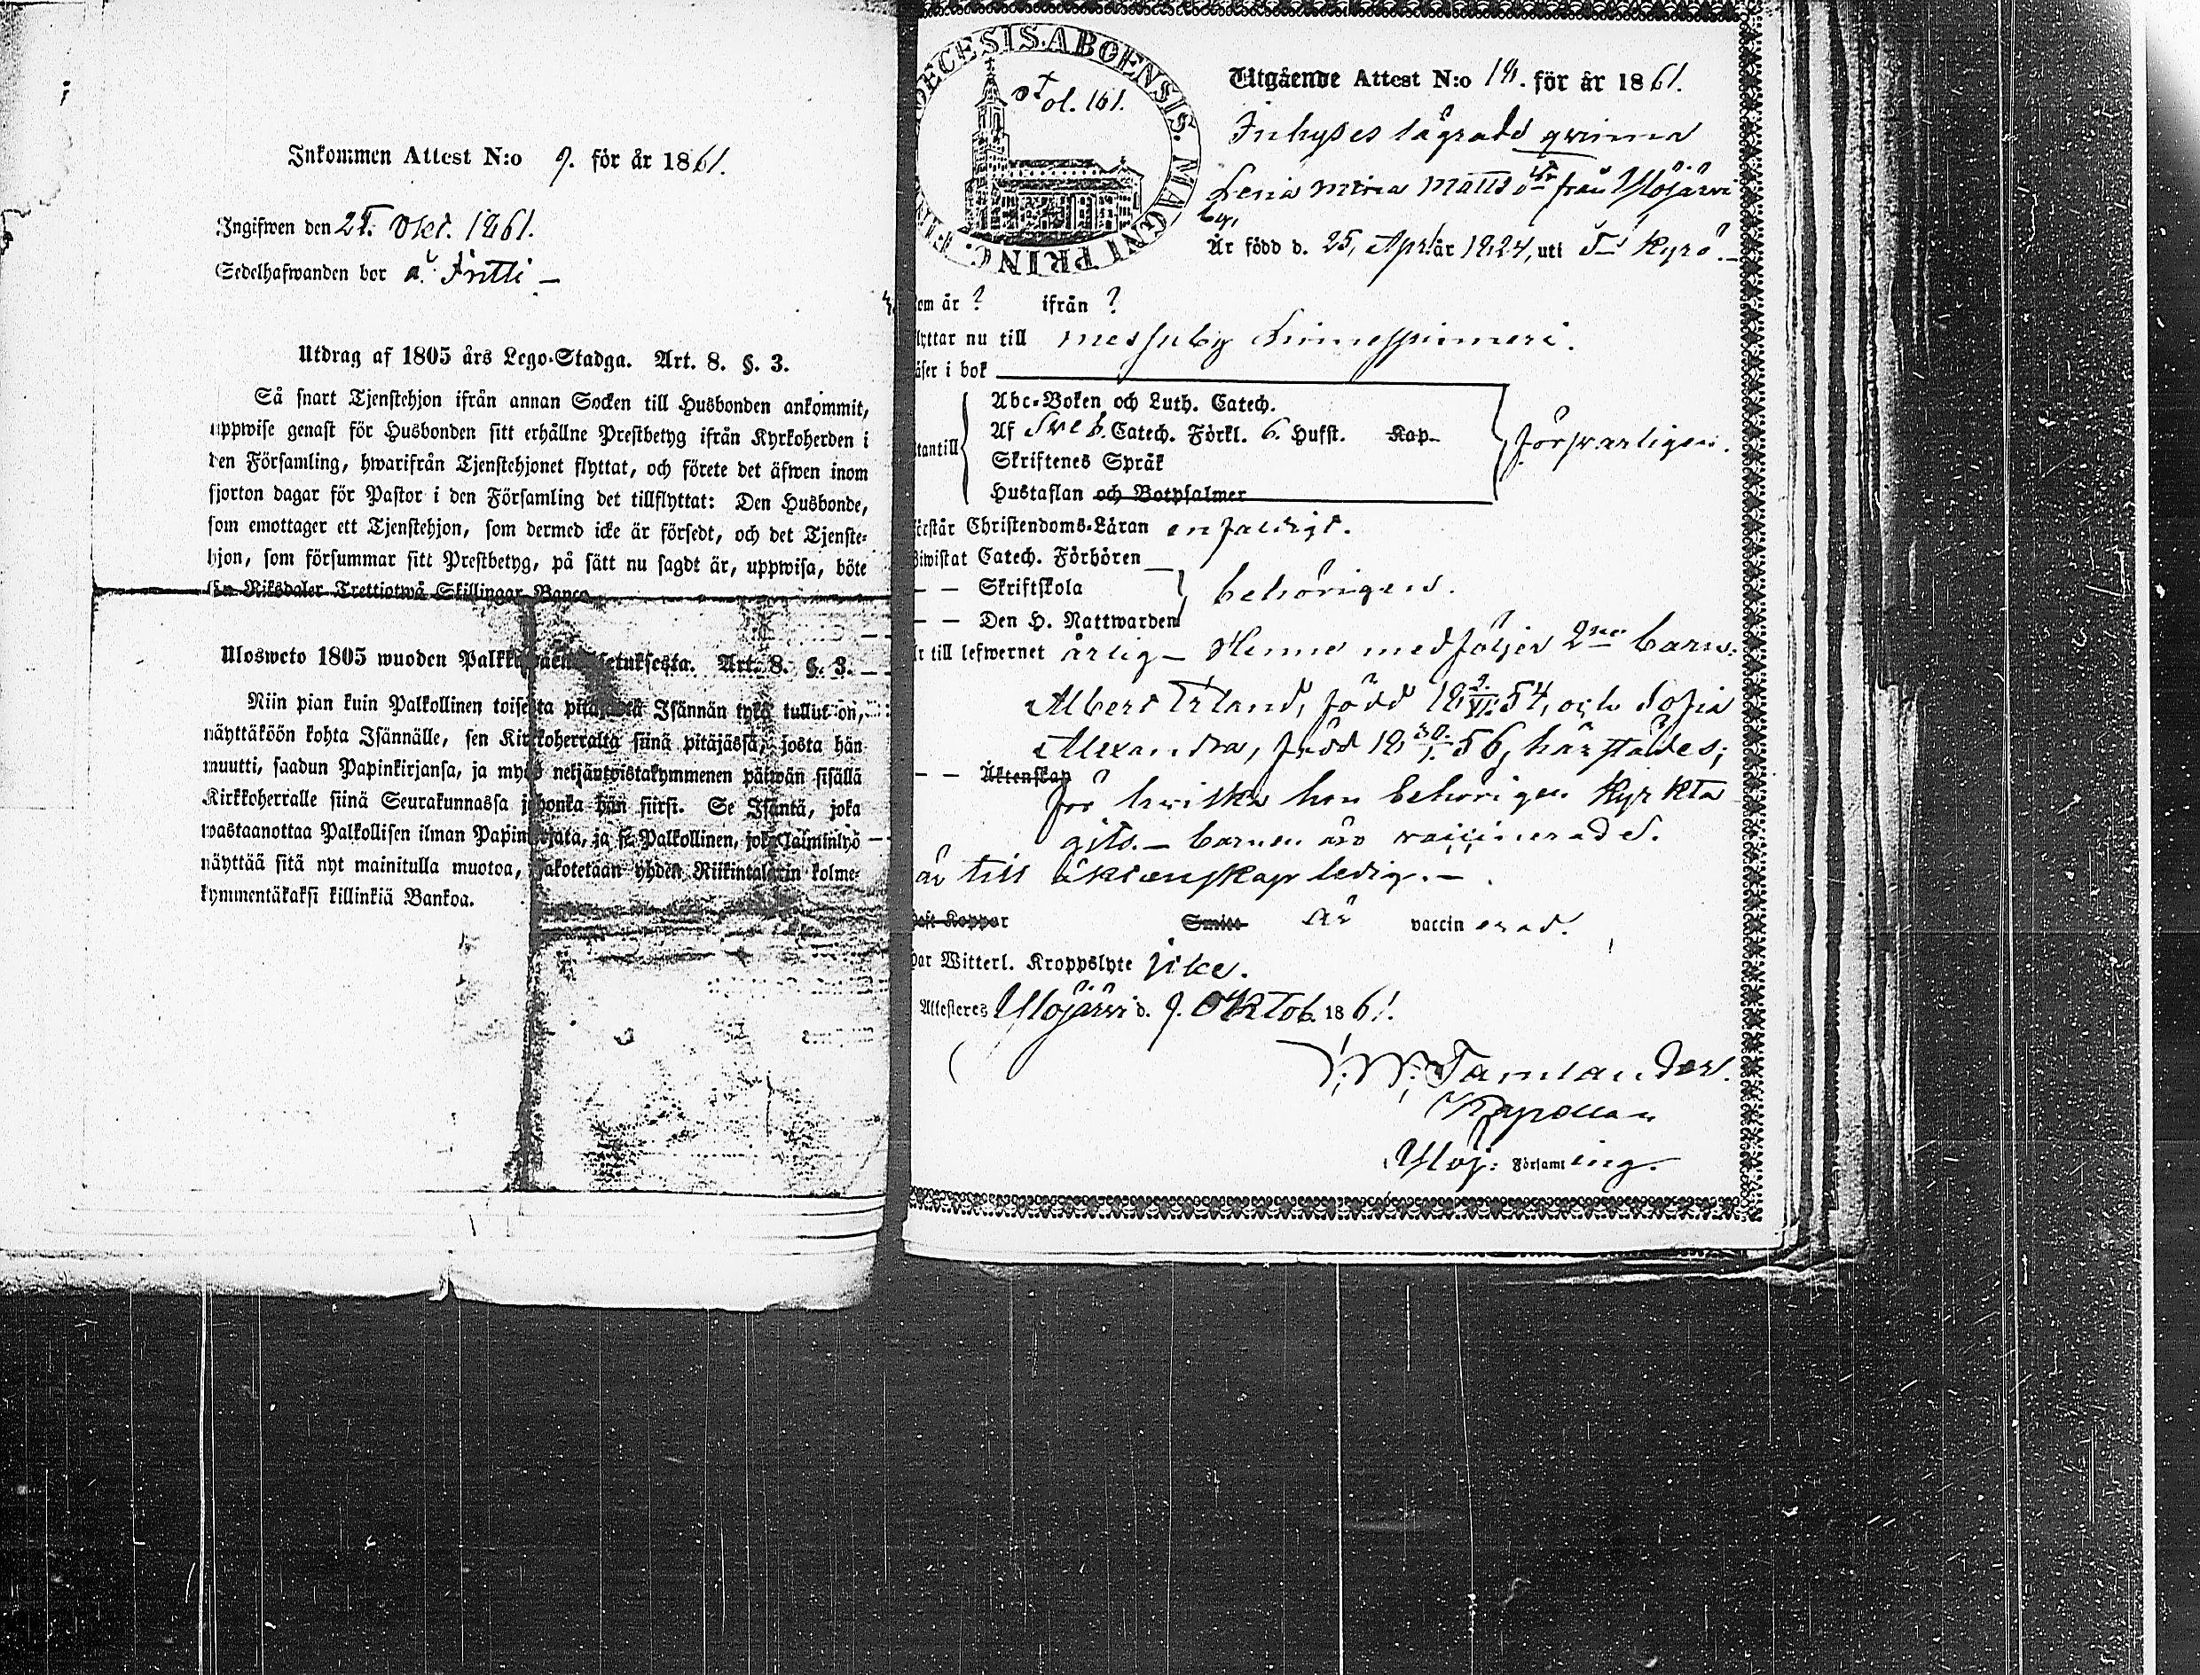 Inkommen Attest N:o 9. för år 1861.
Ingifwen den 21. Okt. 1861.
Sedelhafwanden bor å Fritti –
Utdrag af 1805 års Lego-Stadga. Art. 8. §. 3.
Så snart Tjenstehjon ifrån annan Socken till Husbonden ankommit,
uppwise genast för Husbonden sitt erhållne Prestbetyg ifrån Kyrkoherden i
den Församling, hwarifrån Tjenstehjonet flyttat, och förete det äfwen inom
fjorton dagar för Pastor i den Församling det tillflyttat: Den Husbonde,
som emottager ett Tjenstehjon, som dermed icke är försedt, och det Tjenste-
hjon, som försummar sitt Prestbetyg, på sätt nu sagdt är, uppwisa, böte
En Riksdaler Trettiotwå Skillingar Banco.
Ulosweto 1805 wuoden Art. 8. §. 3.
Niin pian kuin Palkollinen toisesta pitäjästä Isännän tykö tullut on,
näyttäköön kohta Isännälle, sen Kirkkoherralta siinä pitäjässä, josta hän
muutti, saadun Papinkirjansa, ja myös neljäntoistakymmenen päiwän sisällä
Kirkkoherralle siinä Seurakunnassa johonka hän siirsi. Se Isäntä, joka
wastaanottaa Palkollisen ilman Papinkirjata, ja se Palkollinen, joka laiminlyö
näyttää sitä nyt mainitulla muotoa, sakotetaan yhden Riikintalarin kolme-
kymmentäkaksi killinkiä Bankoa.
DIOECESIS. ABOENSIS. MAGNI PRINC. FINL.
Fol. 161.
Utgående Attest N:o 18. för år 1861.
Inhyses lägrade qvinna
Lena Maria Matts dr från Ylöjärvi
by,
Är född d. 25, Apr. år 1824, uti T. Kyrö. –
om år ? ifrån ?
lyttar nu till Messuby Linnespinneri.
äser i bok
Abc-Boken och Luth. Catech.
Af Sveb. Catech. Förkl. 6. Hufst. Kap.
Skriftenes Språk
Hustaflan och Botpsalmer
utantill försvarligen.
örstår Christendoms-Läran enfaldigt.
Biwistat Catech. Förhören
– – Skriftskola
behörigen.
– – Den H. Nattwarden
Är till lefwernet ärlig – Henne medföljer 2ne barn:
Albert Erland, född 18 9/XI 54, och Sofia
Alexandra, född 18 30/1 56, härstädes;
– – Äktenskap
för hvilka hon behörigen kyrkta
gits. – Barnen äro vaccinerade.
är till äktenskap ledig. –
haft Koppor Smitt är vaccin erad.
har Witterl. Kroppslyte icke.
Attesteres Ylöjärvi d. 9. Oktob. 1861.
Tamlander.
Kapellan
Ylöj: Församling.